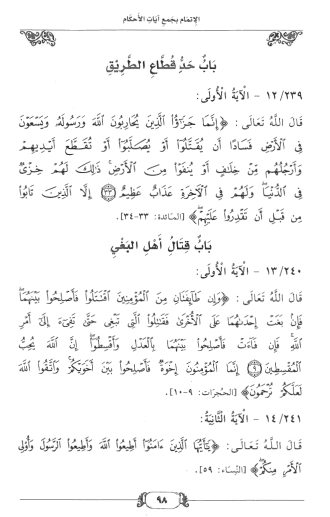 الإتمام بجمع آيات الأحكام
بَابُ حَدِّ قُطَّاعِ الطَّرِيْقِ
١٢/٢٣٩ - الآيَةُ الأُولَى:
قَالَ اللَّهُ تَعَالَى: ﴿إِنَّمَا جَزَٰٓؤُا۟ ٱلَّذِينَ يُحَارِبُونَ ٱللَّهَ وَرَسُولَهُۥ وَيَسْعَوْنَ
فِى ٱلْأَرْضِ فَسَادًا أَن يُقَتَّلُوٓا۟ أَوْ يُصَلَّبُوٓا۟ أَوْ تُقَطَّعَ أَيْدِيهِمْ
وَأَرْجُلُهُم مِّنْ خِلَٰفٍ أَوْ يُنفَوْا۟ مِنَ ٱلْأَرْضِ ۚ ذَٰلِكَ لَهُمْ خِزْىٌ
فِى ٱلدُّنْيَا ۖ وَلَهُمْ فِى ٱلْءَاخِرَةِ عَذَابٌ عَظِيمٌ ٣٣ إِلَّا ٱلَّذِينَ تَابُوا۟
مِن قَبْلِ أَن تَقْدِرُوا۟ عَلَيْهِمْ ۖ﴾ [المائدة: ٣٣-٣٤].
بَابُ قِتَالِ أَهْلِ البَغْيِ
١٣/٢٤٠ - الآيَةُ الأُولَى:
قَالَ اللَّهُ تَعَالَى: ﴿وَإِن طَآئِفَتَانِ مِنَ ٱلْمُؤْمِنِينَ ٱقْتَتَلُوا۟ فَأَصْلِحُوا۟ بَيْنَهُمَا ۖ
فَإِنۢ بَغَتْ إِحْدَىٰهُمَا عَلَى ٱلْأُخْرَىٰ فَقَٰتِلُوا۟ ٱلَّتِى تَبْغِى حَتَّىٰ تَفِىٓءَ إِلَىٰٓ أَمْرِ
ٱللَّهِ ۚ فَإِن فَآءَتْ فَأَصْلِحُوا۟ بَيْنَهُمَا بِٱلْعَدْلِ وَأَقْسِطُوٓا۟ ۖ إِنَّ ٱللَّهَ يُحِبُّ
ٱلْمُقْسِطِينَ ٩ إِنَّمَا ٱلْمُؤْمِنُونَ إِخْوَةٌ فَأَصْلِحُوا۟ بَيْنَ أَخَوَيْكُمْ ۚ وَٱتَّقُوا۟ ٱللَّهَ
لَعَلَّكُمْ تُرْحَمُونَ﴾ [الحجرات: ٩-١٠].
١٤/٢٤١ - الآيَةُ الثَّانِيَةُ:
قَالَ اللَّهُ تَعَالَى: ﴿يَٰٓأَيُّهَا ٱلَّذِينَ ءَامَنُوٓا۟ أَطِيعُوا۟ ٱللَّهَ وَأَطِيعُوا۟ ٱلرَّسُولَ وَأُو۟لِى
ٱلْأَمْرِ مِنكُمْ ۖ﴾ [النساء: ٥٩].
٩٨